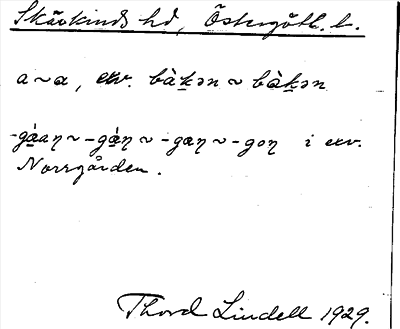 Skärkinds hd, Östergötl. l.
a ~ ɑ, exv. bàk̲ən ~ bɑ̀k̲ən
-gɑ̀ɑŋ ~ -gɑ̀ŋ ~ -gɑŋ ~ -goŋ i exv.
Norrgården.
Thord Lindell 1929.